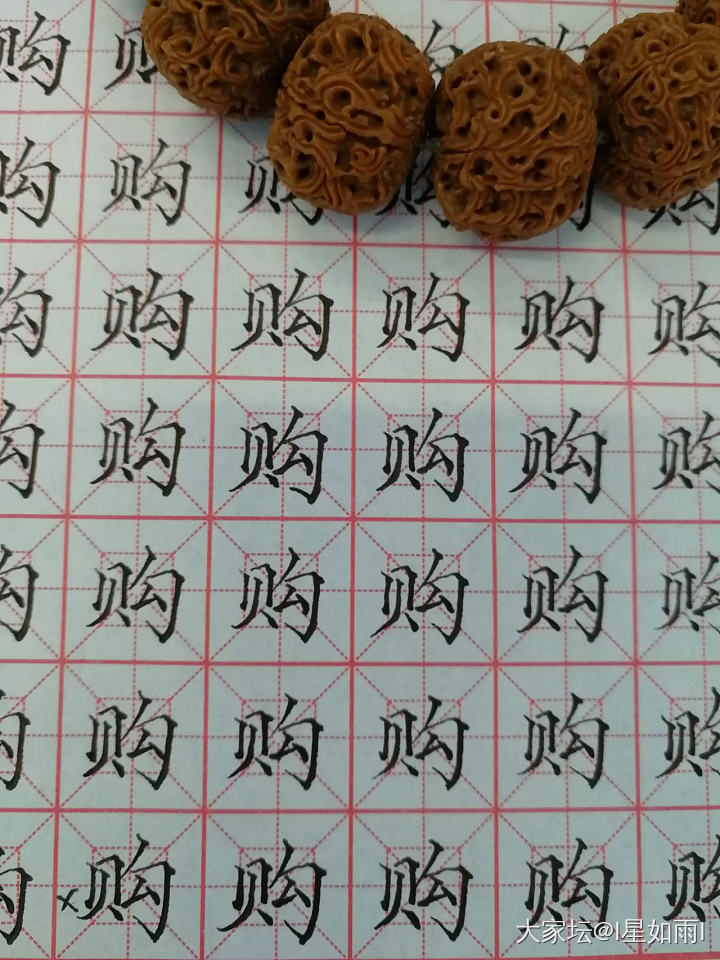 购 购
购 购 购 购
购 购 购 购 购 购
购 购 购 购 购 购
购 购 购 购 购 购
购 购 购 购 购 购
购 ×购 购 购 购 购
大家坛@I星如雨I